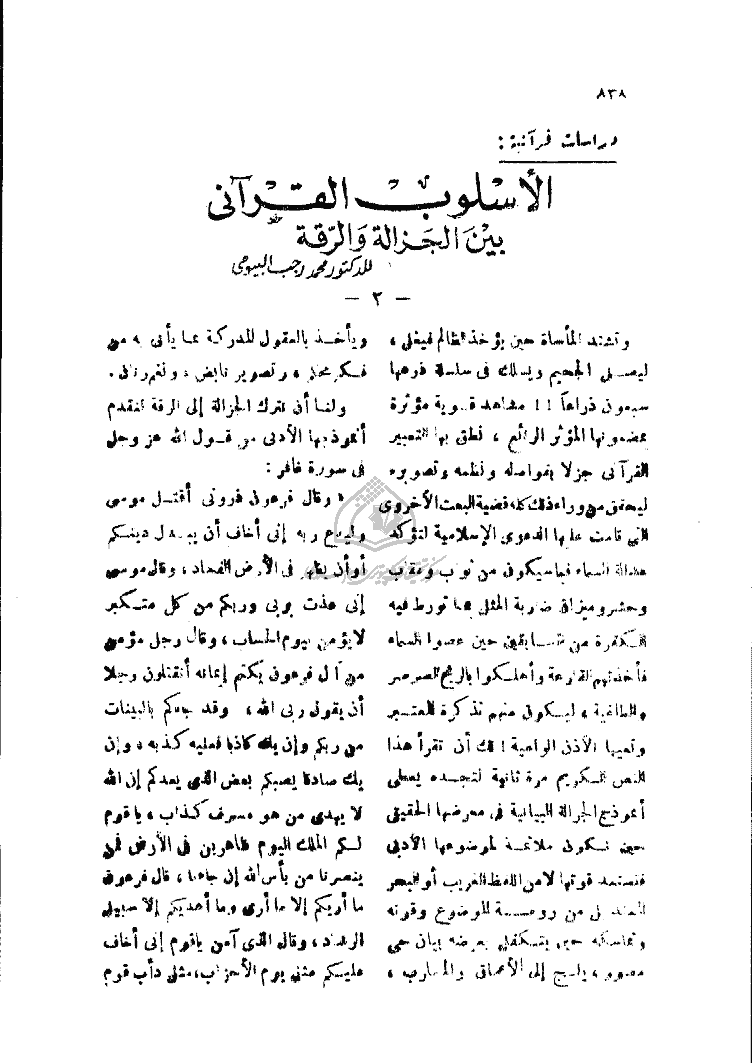 ٨٣٨
دراسات قرآنية :
الأسلوب القرآنى
بين الجزالة والرقة
للدكتور محمد رجب البيومى
— ٢ —
وتشتد المأساة حين يؤخذ الظالم فيغل ،
ليصلى الجحيم ويسلك فى سلسلة ذرعها
سبعون ذراعاً !! مشاهد قوية مؤثرة
بمضمونها المؤثر الرائع ، نطق بها التعبير
القرآنى جزلا بفواصله ونظمه وتصويره
ليحقق من وراء ذلك كله قضية البعث الأخروى
التى قامت عليها الدعوى الإسلامية لتؤكد
عدالة السماء فيما سيكون من ثواب وعقاب
وحشر وميزان ضاربة المثل بما تورط فيه
الكفرة من السابقين حين عصوا السماء
فأخذتهم القارعة وأهلكوا بالريح الصرصر
والطاغية ، ليسكون منهم تذكرة للمعتبر
وتعيها الأذن الواعية ! لك أن تقرأ هذا
النص الكريم مرة ثانية لتجده يعطى
أنموذج الجزالة البيانية فى معرضها الحقيقى
حين تكون ملائمة لموضوعها الأدبى
فتستمد قوتها لا من اللفظ الغريب أو
من روعة الموضوع وقوته
وتماسكه حين يتكفل بعرضه بيان حى
مصور ، يلج إلى الأعماق والمسارب ،
ويأخذ بالعقول المدركة بما يأتى به من
فكر محلل ، وتصوير نابض ، ونغم رنان .
ولنا أن نترك الجزالة إلى الرقة لنقدم
أنموذجها الأدبى من قول الله عز وجل
فى سورة غافر :
« وقال فرعون ذرونى أقتل موسى
وليدع ربه إنى أخاف أن يبدل دينكم
أو أن يظهر فى الأرض الفساد ، وقال موسى
إنى عذت بربى وربكم من كل متكبر
لا يؤمن بيوم الحساب ، وقال رجل مؤمن
من آل فرعون يكتم إيمانه أتقتلون رجلا
أن يقول ربى الله ، وقد جاءكم بالبينات
من ربكم وإن يك كاذبا فعليه كذبه ، وإن
يك صادقا يصبكم بعض الذى يعدكم إن الله
لا يهدى من هو مسرف كذاب ، يا قوم
لكم الملك اليوم ظاهرين فى الأرض فمن
ينصرنا من بأس الله إن جاءنا ، قال فرعون
ما أريكم إلا ما أرى وما أهديكم إلا سبيل
الرشاد ، وقال الذى آمن يا قوم إنى أخاف
عليكم مثل يوم الأحزاب ، مثل دأب قوم